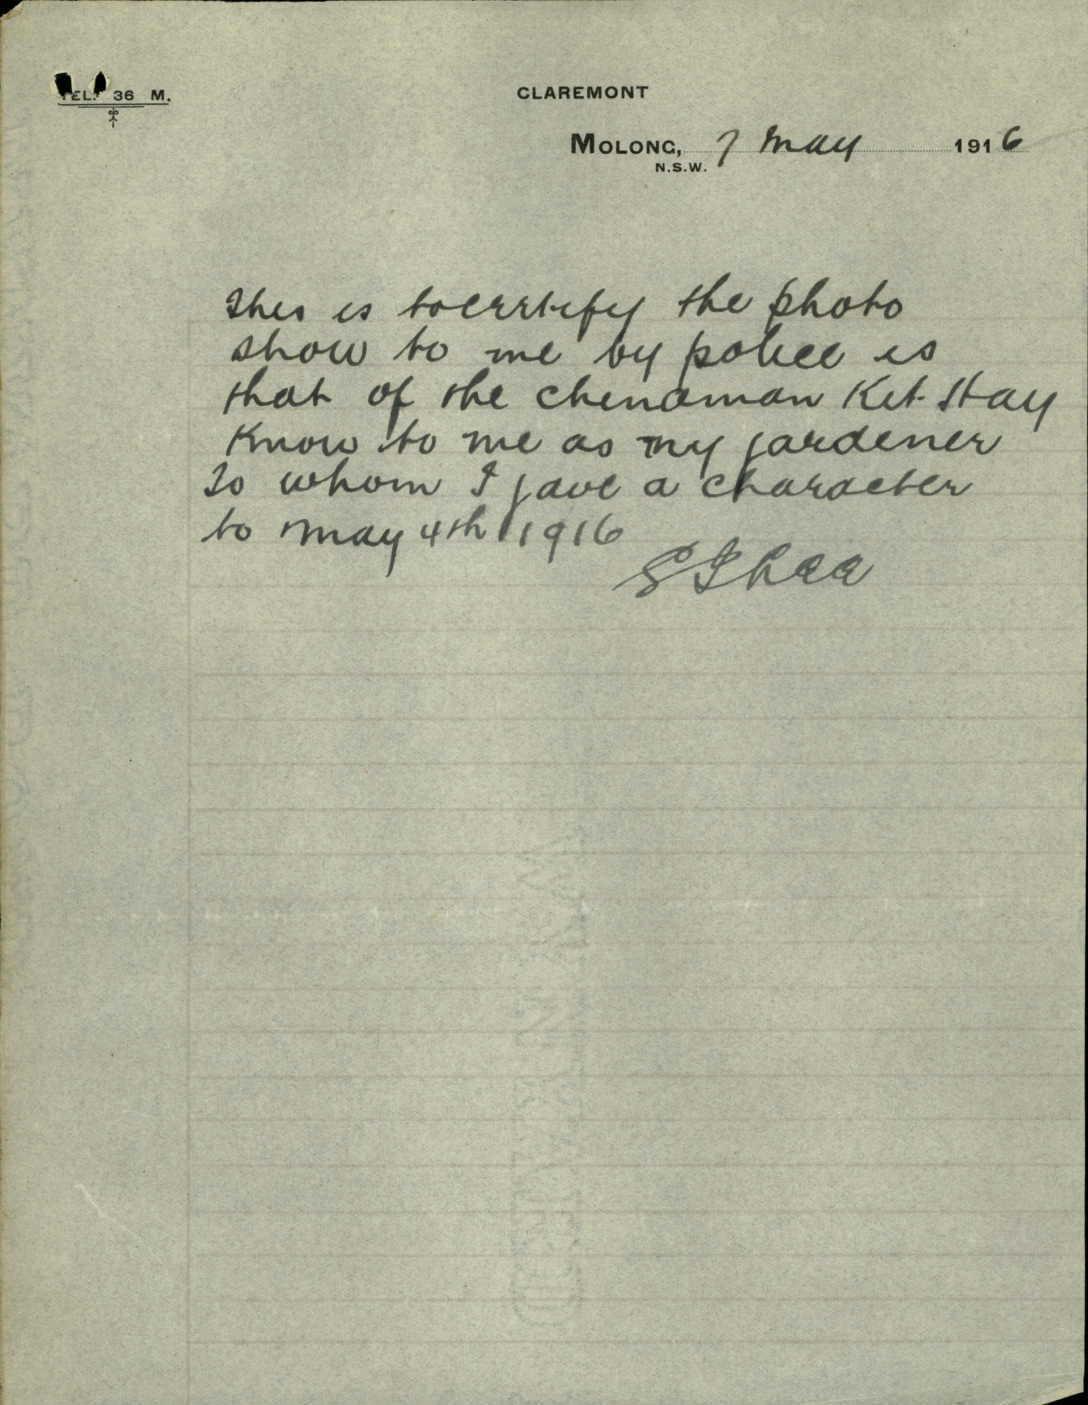 TEL. 36 M.
CLAREMONT
MOLONG, 7 May 1916
N.S.W.
This is to cerrtify the photo
show to me by police is
that of the chinaman Kit Hay
Know to me as my gardener
to whom I gave a character
to May 4th 1916